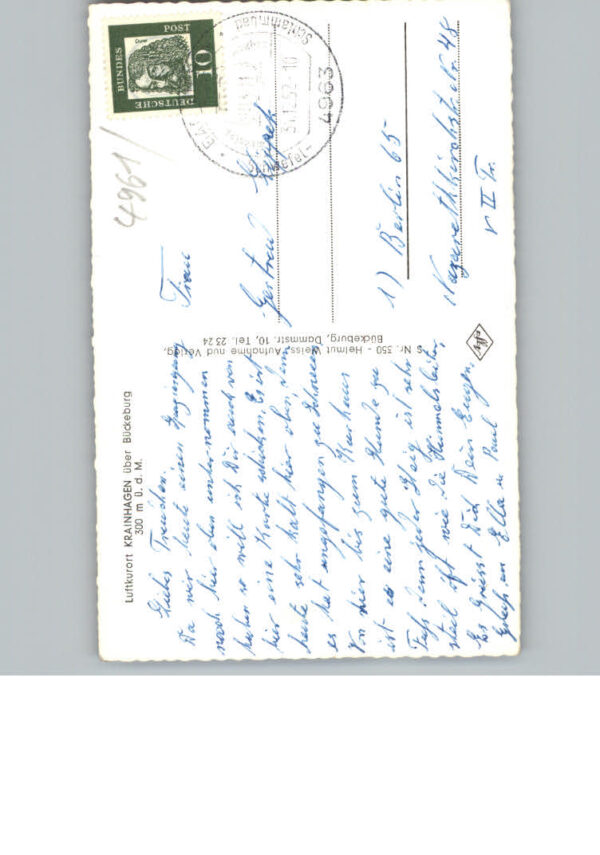 Luftkurort KRAINHAGEN über Bückeburg
300 m ü. d. M.
Liebes Trudchen.
Da wir heute einen Spaziergang
nach hier oben unternommen
haben so will ich Dir auch von
hier eine Karte schicken. Es ist
heute sehr kalt hier oben, denn
es hat angefangen zu schneien
Von hier bis zum Kurhaus
ist es eine gute Stunde zu
Fuß, denn der Steig ist sehr
steil ist wie die Himmelsleiter,
Es Grüsst Dich Dein Eugen.
Gruß an Ella u Paul
S Nr. 350 - Helmut Weiss, Aufnahme nud Verlag,
Bückeburg, Dammstr. 10, Tel. 23 24
Agfa
DEUTSCHE
BUNDES
POST
10
Dürer
Schlammbad
4963
4961/
Frau
Gertrud
1) Berlin 65
Nazarethkirchstr. Nr 48
v II Tr.